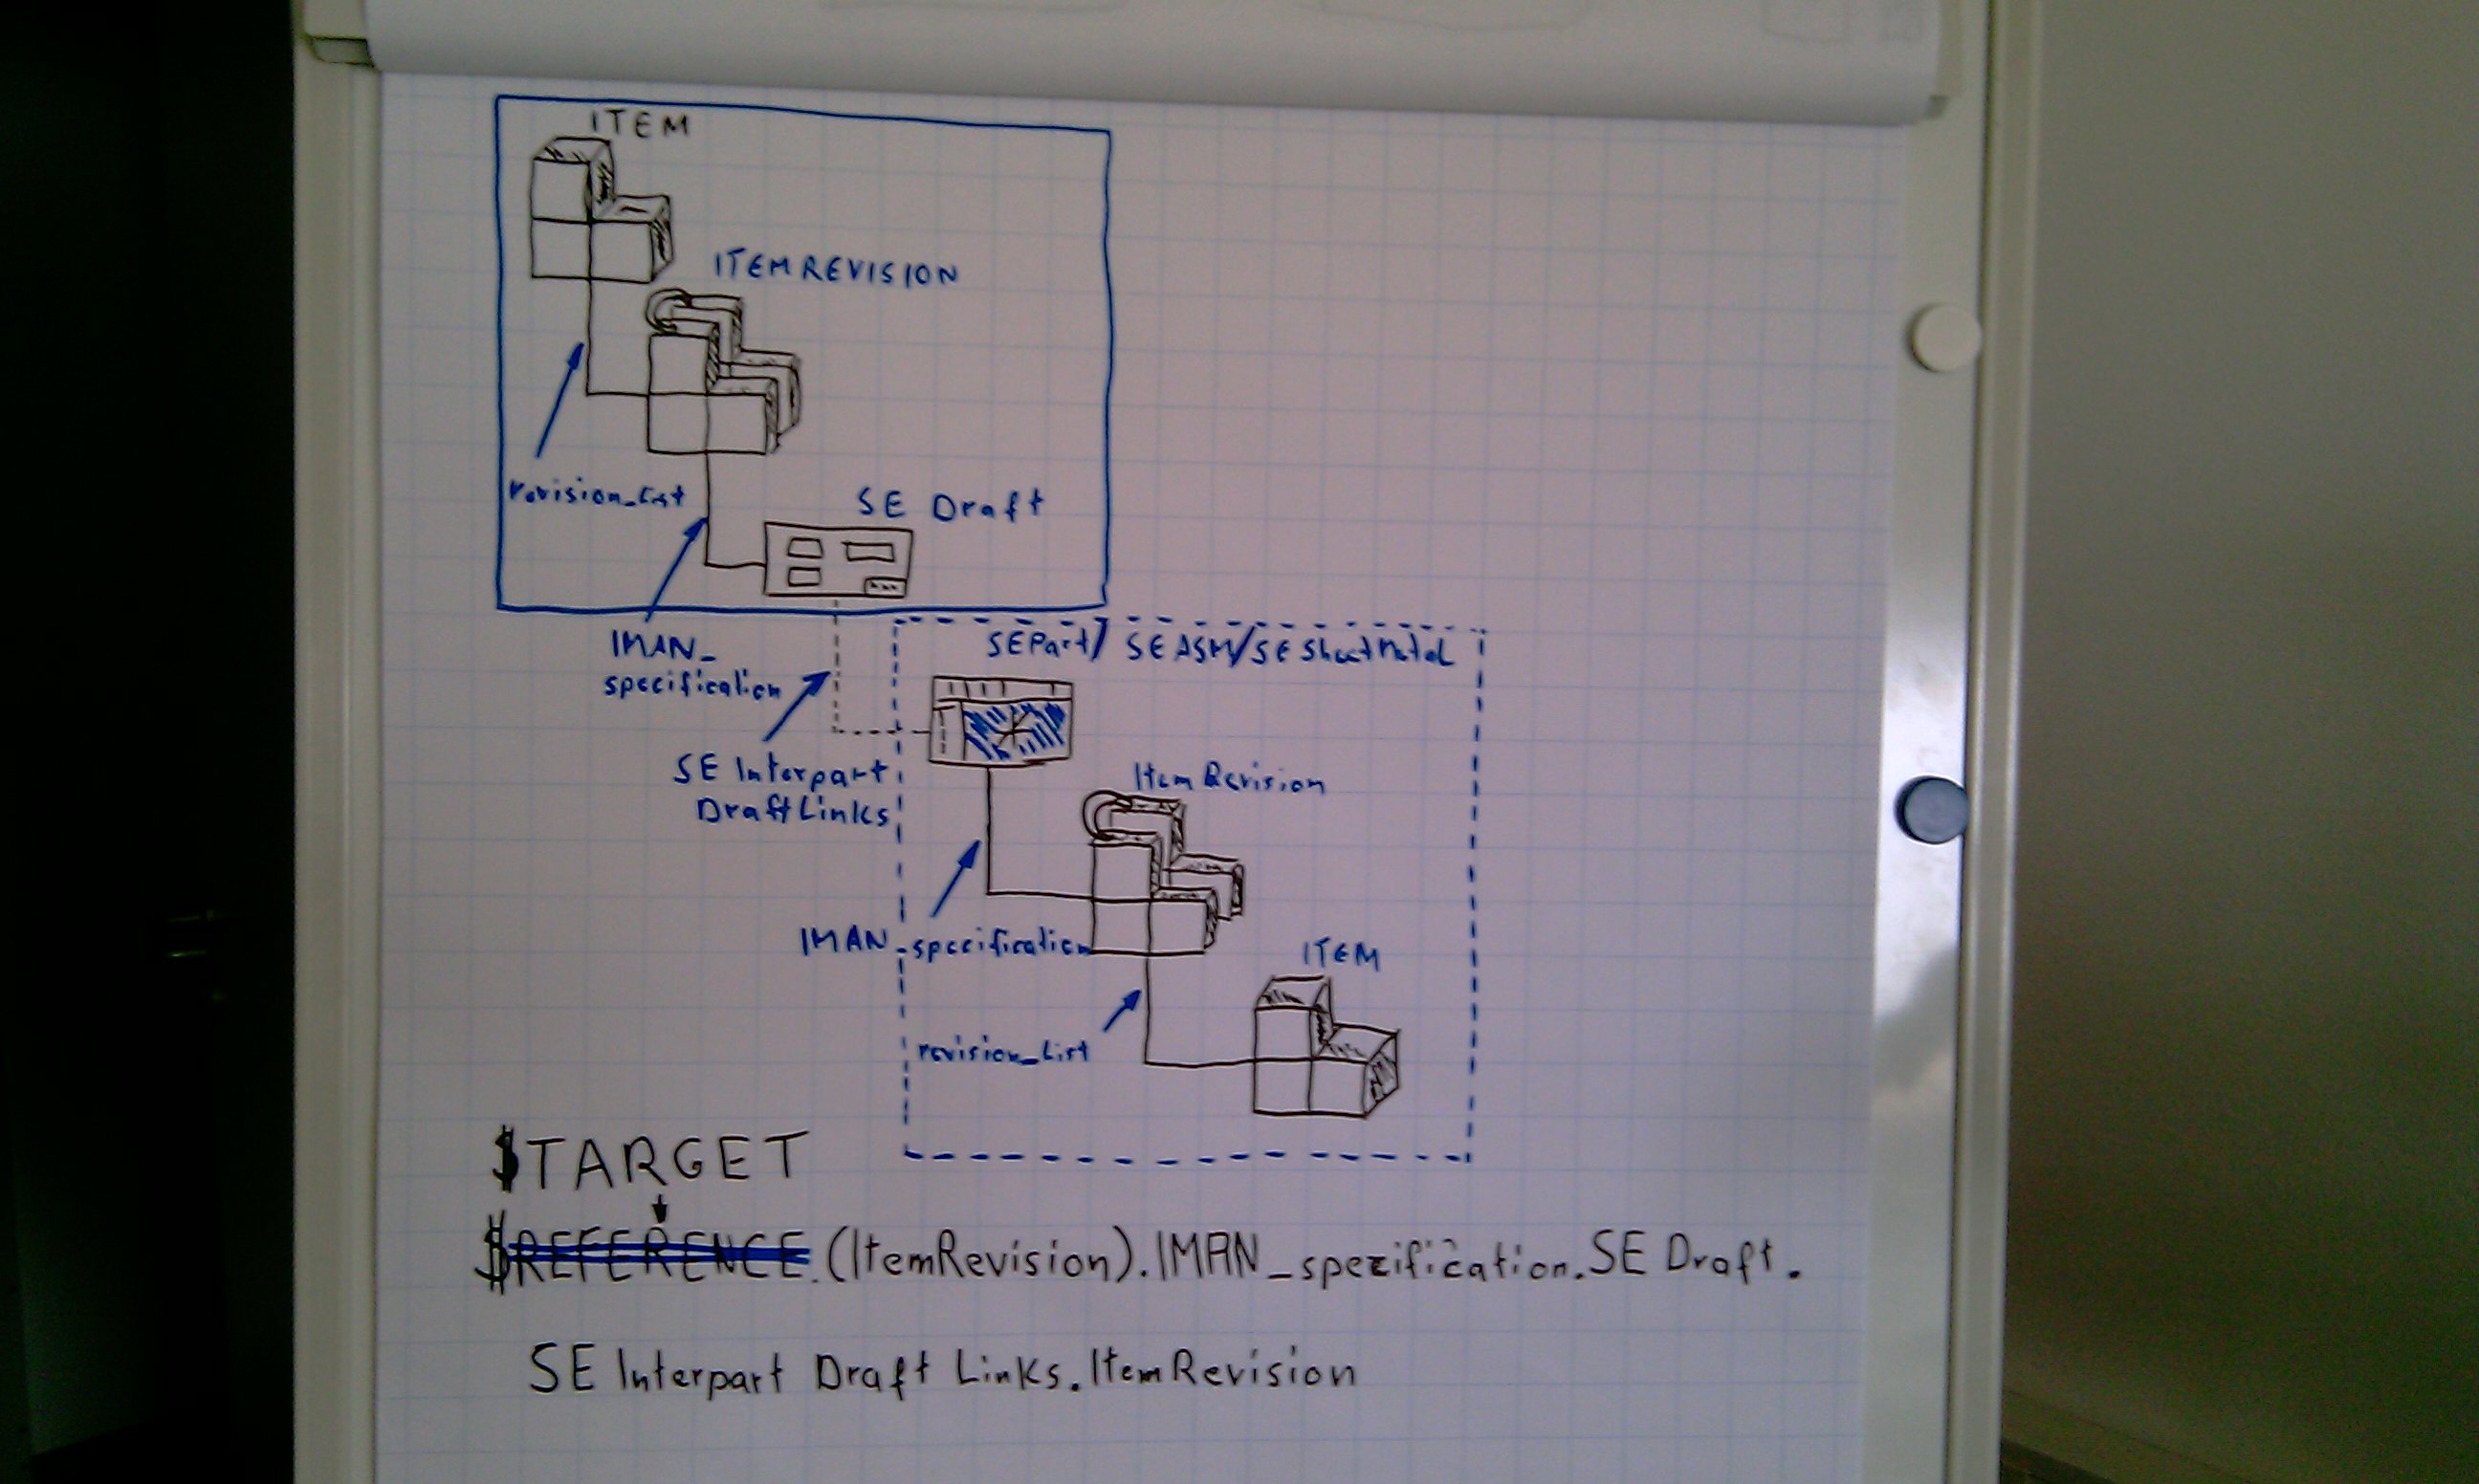 ITEM
ITEMREVISION
revision_list
SE Draft
IMAN_
specification
SEPart/ SE ASM/SE SheetMetal
SE Interpart
DraftLinks
ItemRevision
IMAN_specification
ITEM
revision_list
$TARGET
$REFERENCE.(ItemRevision).IMAN_spezification.SE Draft.
SE Interpart Draft Links.ItemRevision